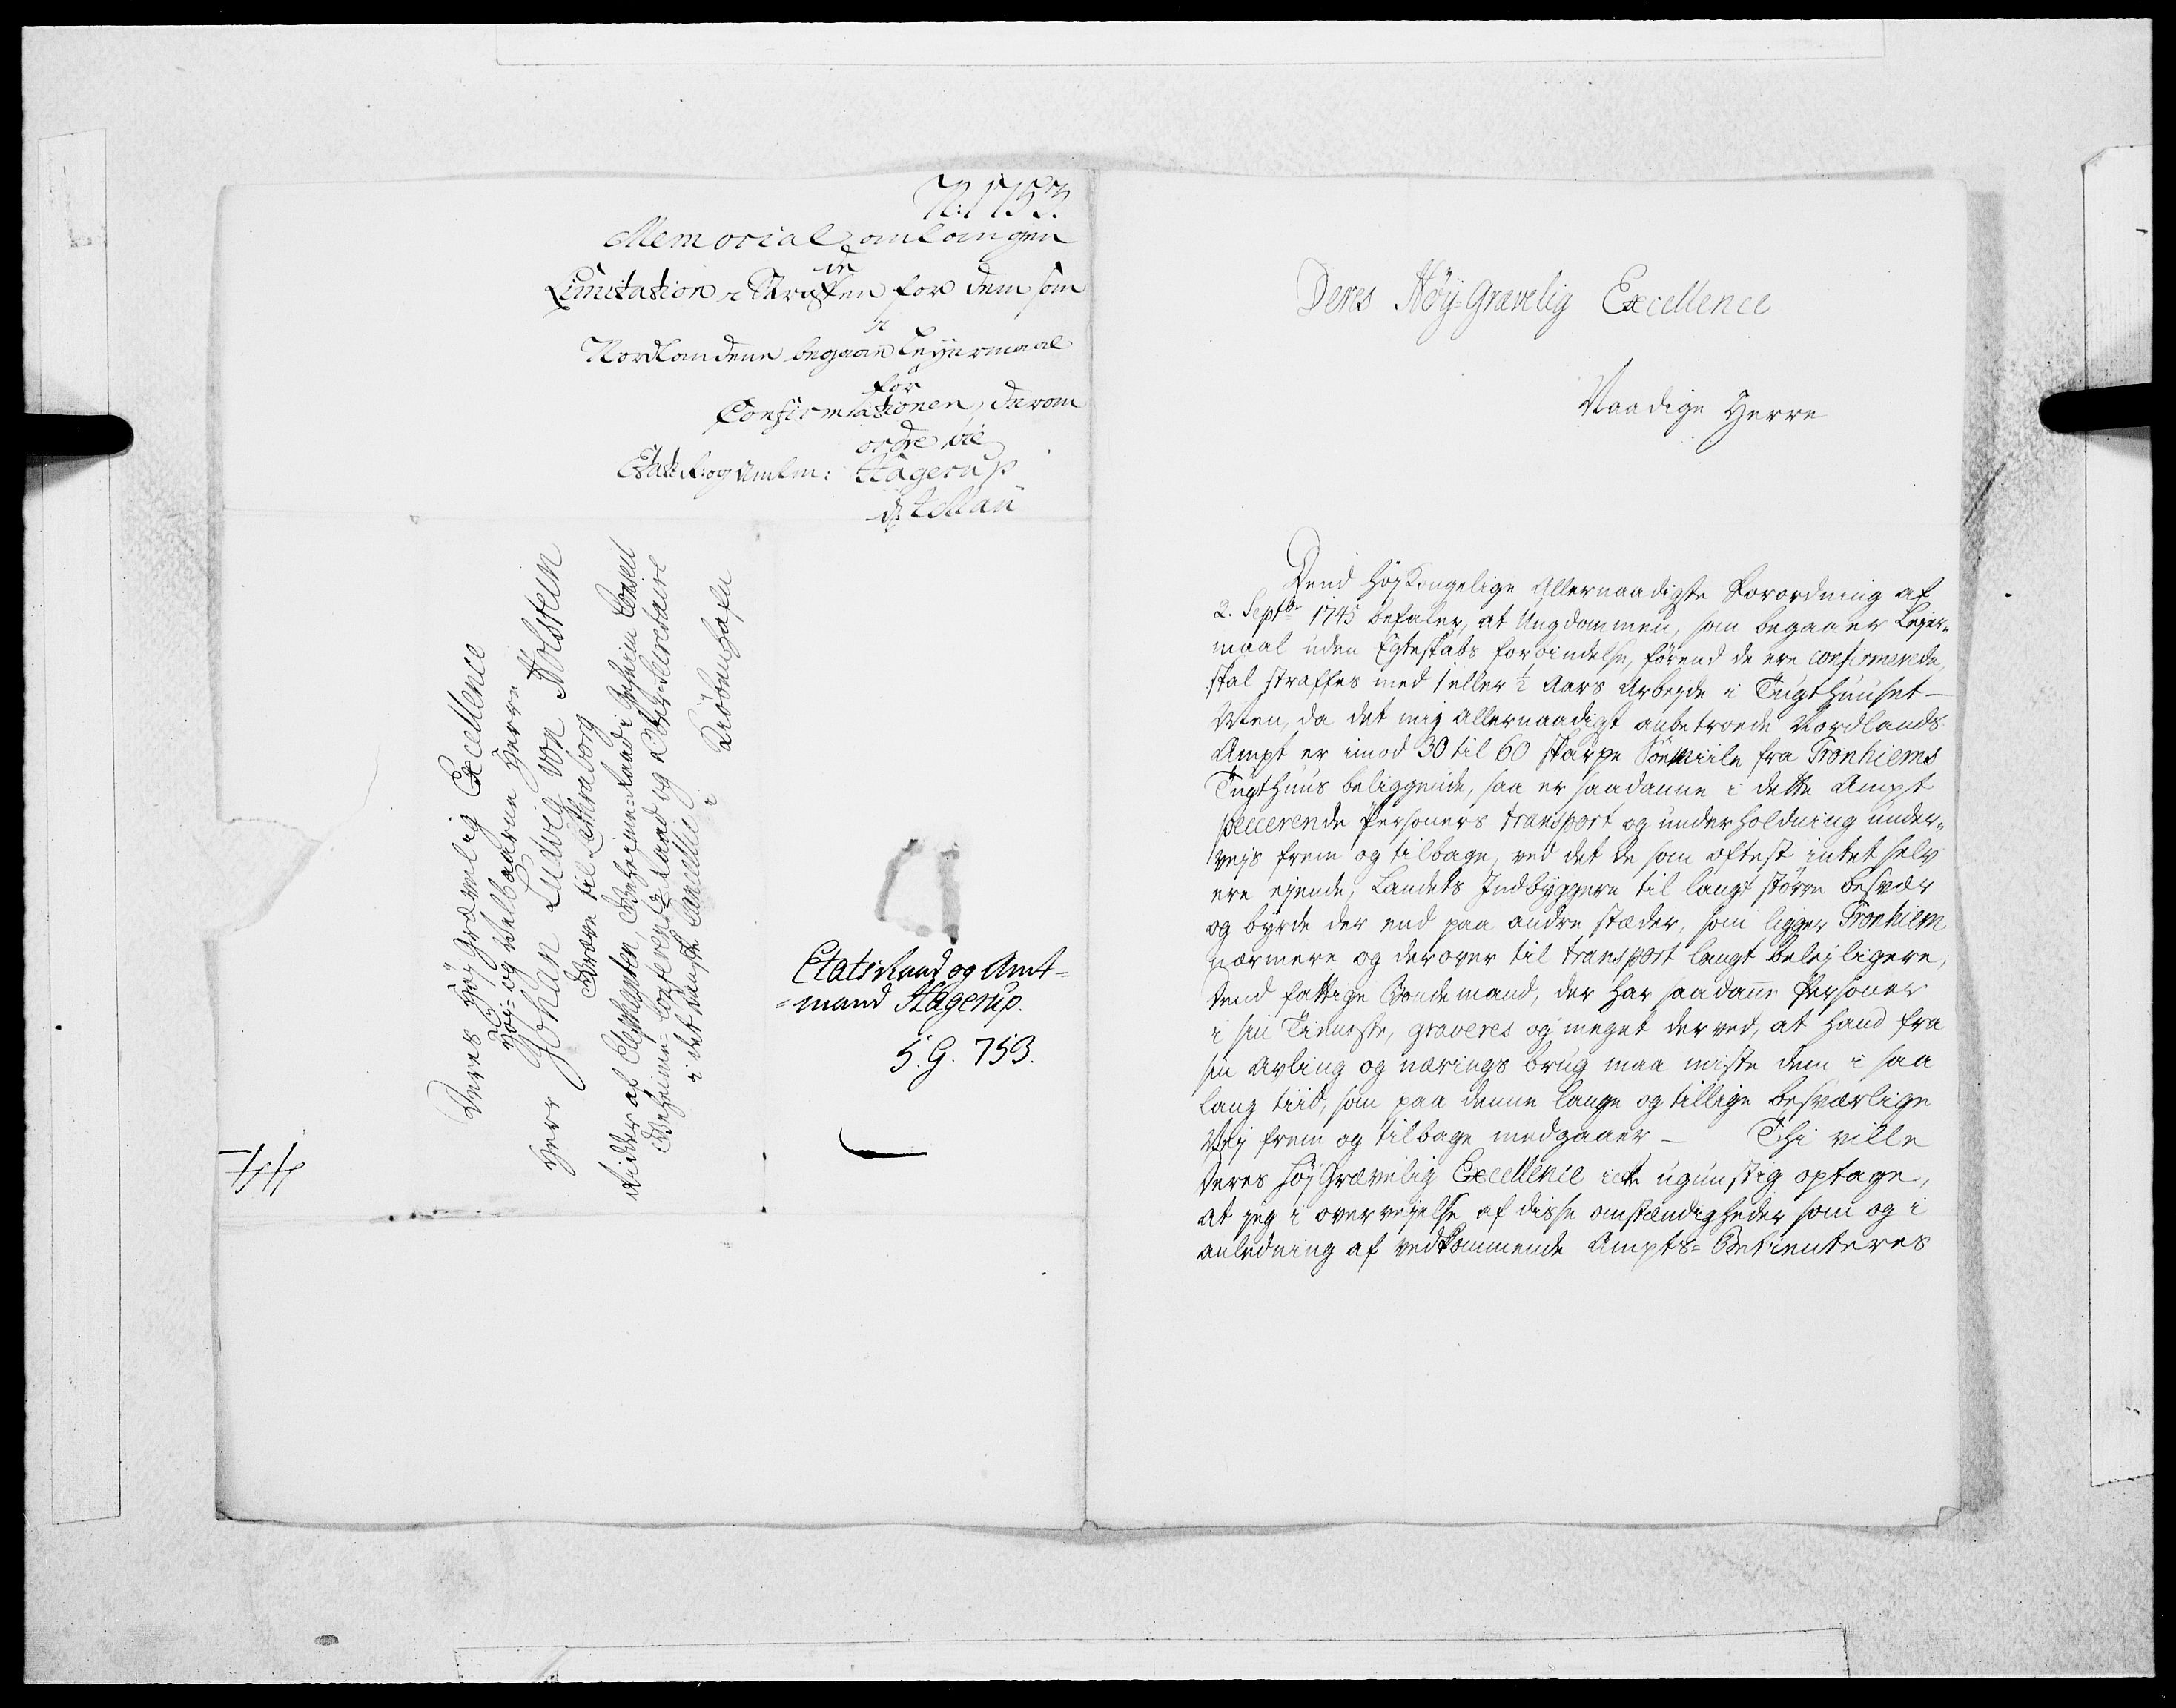 N: 1753
Memorial anlangen
de
Limitation i Straffen for dem som
i
Nordlandene begaae Leyermaal
för
Confirmationen, derom
Etatsr: og Amtm: Hagerup
Deres Høy Grævelig Excellence
Høj- og Velbaarne Herre
Herr Johan Ludvig von Holstein
Greve til Lethraborg
Ridder af Elephanten, Geheime-Raad i Geheime Conseil
i det danske Cancellie
i
Kiöbenhafn
Etatsraad og Amt-
-mand Hagerup.
5. G. 753.
Deres Höy-Grævelig Excellence
Naadige Herre
Dend Høj Kongelige Allernaadigste Forordning af
2. Septbr 1745 befaler, at Ungdommen, som begaaer Lejer-
maal uden Egteskabs forbindelse, førend de ere confirmerede,
skal straffes med 1 eller ½ Aars Arbejde i Tugthuuset —
Men, da det mig allernaadigst anbetroede Nordlands
Ampt er imod 30 til 60 skarpe Söe Miile fra Tronhiems
Tugthuus beliggende, saa er saadanne i dette Ampt
peccerende Personers transport og underholdning under-
vejs frem og tilbage, ved det de som oftest intet selv
ere ejende, Landets Indbyggere til langt større besvær
og byrde der end paa andre stæder, som ligger Tronhiem
nærmere og derover til transport langt belejligere;
Dend fattige Bondemand, der har saadanne Personer
i sin Tieneste, graveres og meget derved, at hand fra
sin Avling og nærings brug maa miste dem i saa
lang tiid, som paa denne lange og tillige besværlige
Vej frem og tilbage medgaaer — Thi ville
Deres Høj Grævelig Excellence icke ugunstig optage,
at jeg i overvejelse af disse omstændigheder som og i
anledning af vedkommende Ampts-Betienteres